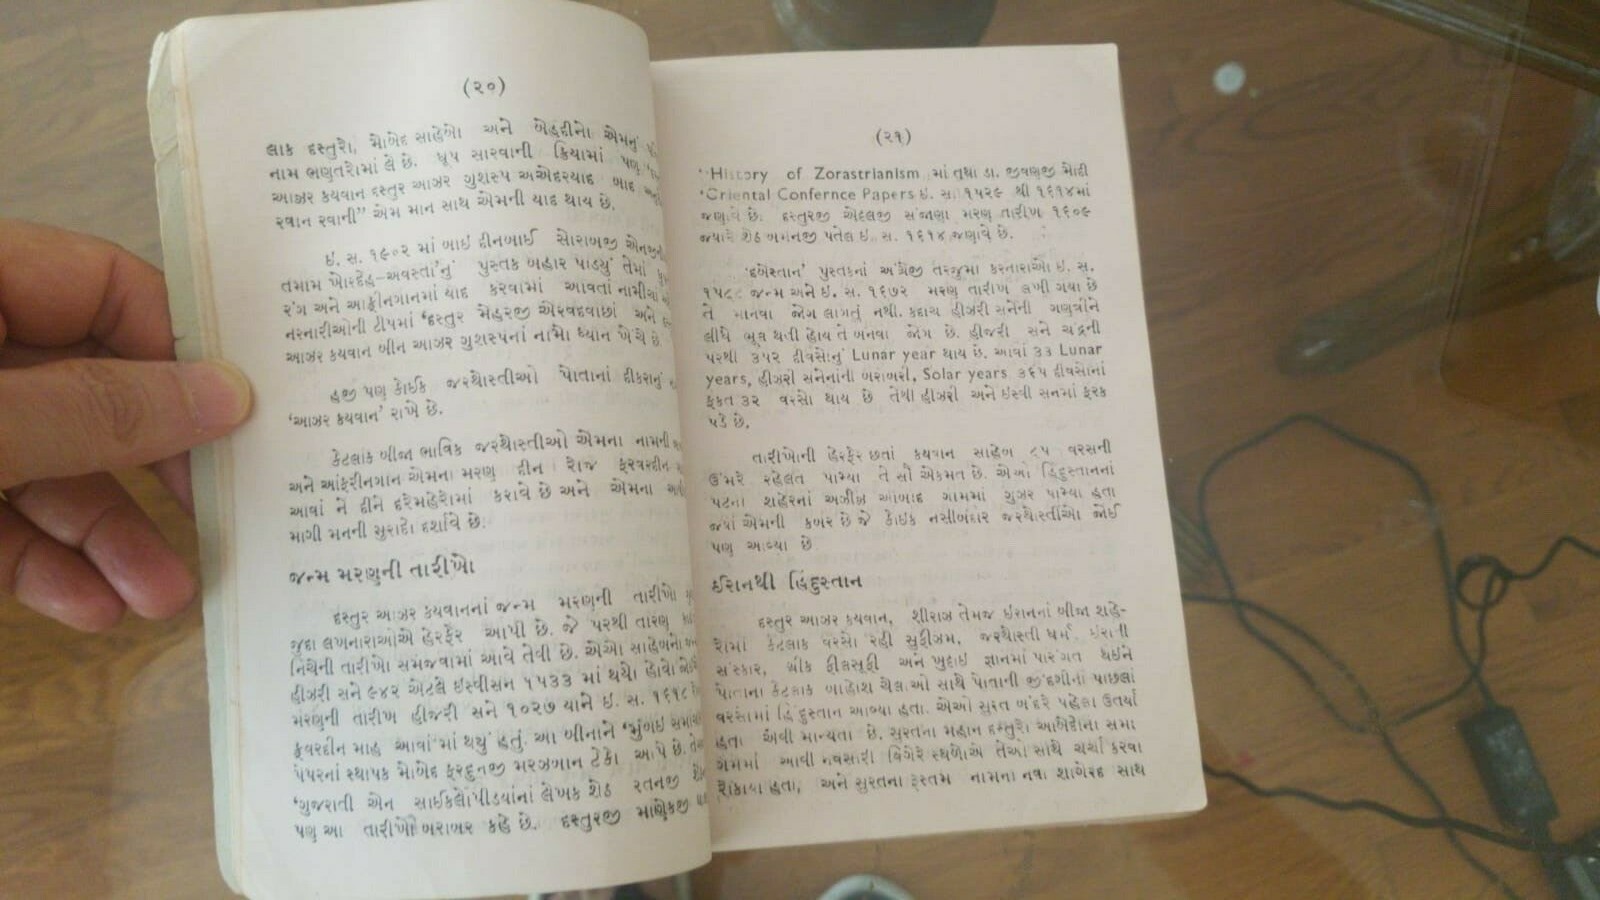 (૨૦)
લાક દસ્તુરો, મોબેદ સાહેબો અને બેહદીનો એમનું
નામ ભણતરોમાં લે છે. ધૂપ સારવાની ક્રિયામાં પણ
આઝર કયવાન દસ્તુર આઝર ગુશસ્પ અએદરયાદ બાદ
રવાન રવાની” એમ માન સાથ એમની યાદ થાય છે.
ઇ. સ. ૧૯૦૨ માં બાઇ દીનબાઈ સોરાબજી
તમામ ખોરદેહ-અવસ્તા'નું પુસ્તક બહાર પાડ્યું તેમાં
રંગ અને આફ્રીનગાનમાં યાદ કરવામાં આવતાં નામીચાં
નરનારીઓની ટીપમાં ‘દસ્તુર મેહરજી એરવદવાછાં અને
આઝર કયવાન બીન આઝર ગુશસ્પનાં નામો ધ્યાન ખેંચે છે
હજી પણ કોઈક જરથોસ્તીઓ પોતાનાં દીકરાનું
‘આઝર કયવાન’ રાખે છે.
કેટલાક બીજા ભાવિક જરથોસ્તીઓ એમના નામની
અને આફરીનગાન એમના મરણ દીન રોજ ફરવરદીન
આવાં ને દીને દરેમહેરોમાં કરાવે છે અને એમના
માગી મનની મુરાદો દર્શાવે છે.
જન્મ મરણની તારીખો
દસ્તુર આઝર કયવાનનાં જન્મ મરણની તારીખો
જુદા લખનારાઓએ હેરફેર આપી છે. જે પરથી તારણ
નિશ્ચેની તારીખો સમજવામાં આવે તેવી છે. એઓ સાહેબનો
હીઝરી સને ૯૪૨ એટલે ઇસ્વીસન ૧૫૩૩ માં થયો હોવો
મરણની તારીખ હીજરી સને ૧૦૨૭ યાને ઇ. સ. ૧૬૧૮
ફવરદીન માહ આવાં માં થયું હતું. આ બીનાને ‘મુંબઇ
પેપરનાં સ્થાપક મોબેદ ફરદુનજી મરઝબાન ટેકો આપે છે.
‘ગુજરાતી એન સાઈકલોપીડયાંનાં લેખક શેઠ રતનજી
પણ આ તારીખો બરાબર કહે છે. દસ્તુરજી માણેકજી
(૨૧)
‘History of Zorastrianism માં તથા ડા. જીવણજી મોદી
‘Oriental Confernce Papers ઇ. સ. ૧૫૨૯ થી ૧૬૧૪માં
જણાવે છે. દસ્તુરજી એદલજી સંજાણા મરણ તારીખ ૧૬૦૯
જ્યારે શેઠ બમનજી પતેલ ઇ. સ. ૧૬૧૪ જણાવે છે.
‘દબેસ્તાન’ પુસ્તકનાં અંગ્રેજી તરજુમા કરનારાઓ ઇ. સ.
જન્મ અને ઇ. સ. ૧૬૭૨ મરણ તારીખ લખી ગયા છે
તે માનવા જોગ લાગતું નથી. કદાચ હીઝરી સનેની ગણત્રીને
લીધે ભૂલ થતી હોય તે બનવા જોગ છે. હીજરી સને ચંદ્રની
પરથી ૩૫૨ દીવસોનું Lunar year થાય છે. આવાં ૩૩ Lunar
years, હીઝરી સનેનાંની બરાબરી, Solar years ૩૬૫ દીવસોનાં
ફકત ૩૨ વરસો થાય છે તેથી હીઝરી અને ઇસ્વી સનમાં ફરક
પડે છે.
તારીખોની હેરફેર છતાં કયવાન સાહેબ ૮૫ વરસની
ઉંમરે રહેલત પામ્યા તે સૌ એકમત છે. એઓ હિંદુસ્તાનનાં
પટના શહેરનાં અઝીમ આબાદ ગામમાં ગુઝર પામ્યા હતા
જ્યાં એમની કબર છે જે કોઇક નસીબદાર જરથોસ્તીઓ જોઈ
પણ આવ્યા છે
ઈરાનથી હિંદુસ્તાન
દસ્તુર આઝર કયવાન, શીરાઝ તેમજ ઇરાનનાં બીજા શહે-
રોમાં કેટલાક વરસો રહી સુફીઝમ, જરથોસ્તી ધર્મ, ઇરાની
સંસ્કાર, ગ્રીક ફીલસૂફી અને ખુદાઇ જ્ઞાનમાં પારંગત થઇને
પોતાના કેટલાક બાહોશ ચેલાઓ સાથે પોતાની જીંદગીનાં પાછલાં
વરસોમાં હિંદુસ્તાન આવ્યા હતા. એઓ સુરત બંદરે પહેલા ઉતર્યા
હતા એવી માન્યતા છે. સુરતના મહાન દસ્તુરો આબેદોના સમા
ગમમાં આવી નવસારી વિગેરે સ્થળોએ તેઓ સાથે ચર્ચા કરવા
રોકાયા હતા, અને સુરતના રૂસ્તમ નામના નવા શાગેરદ સાથ